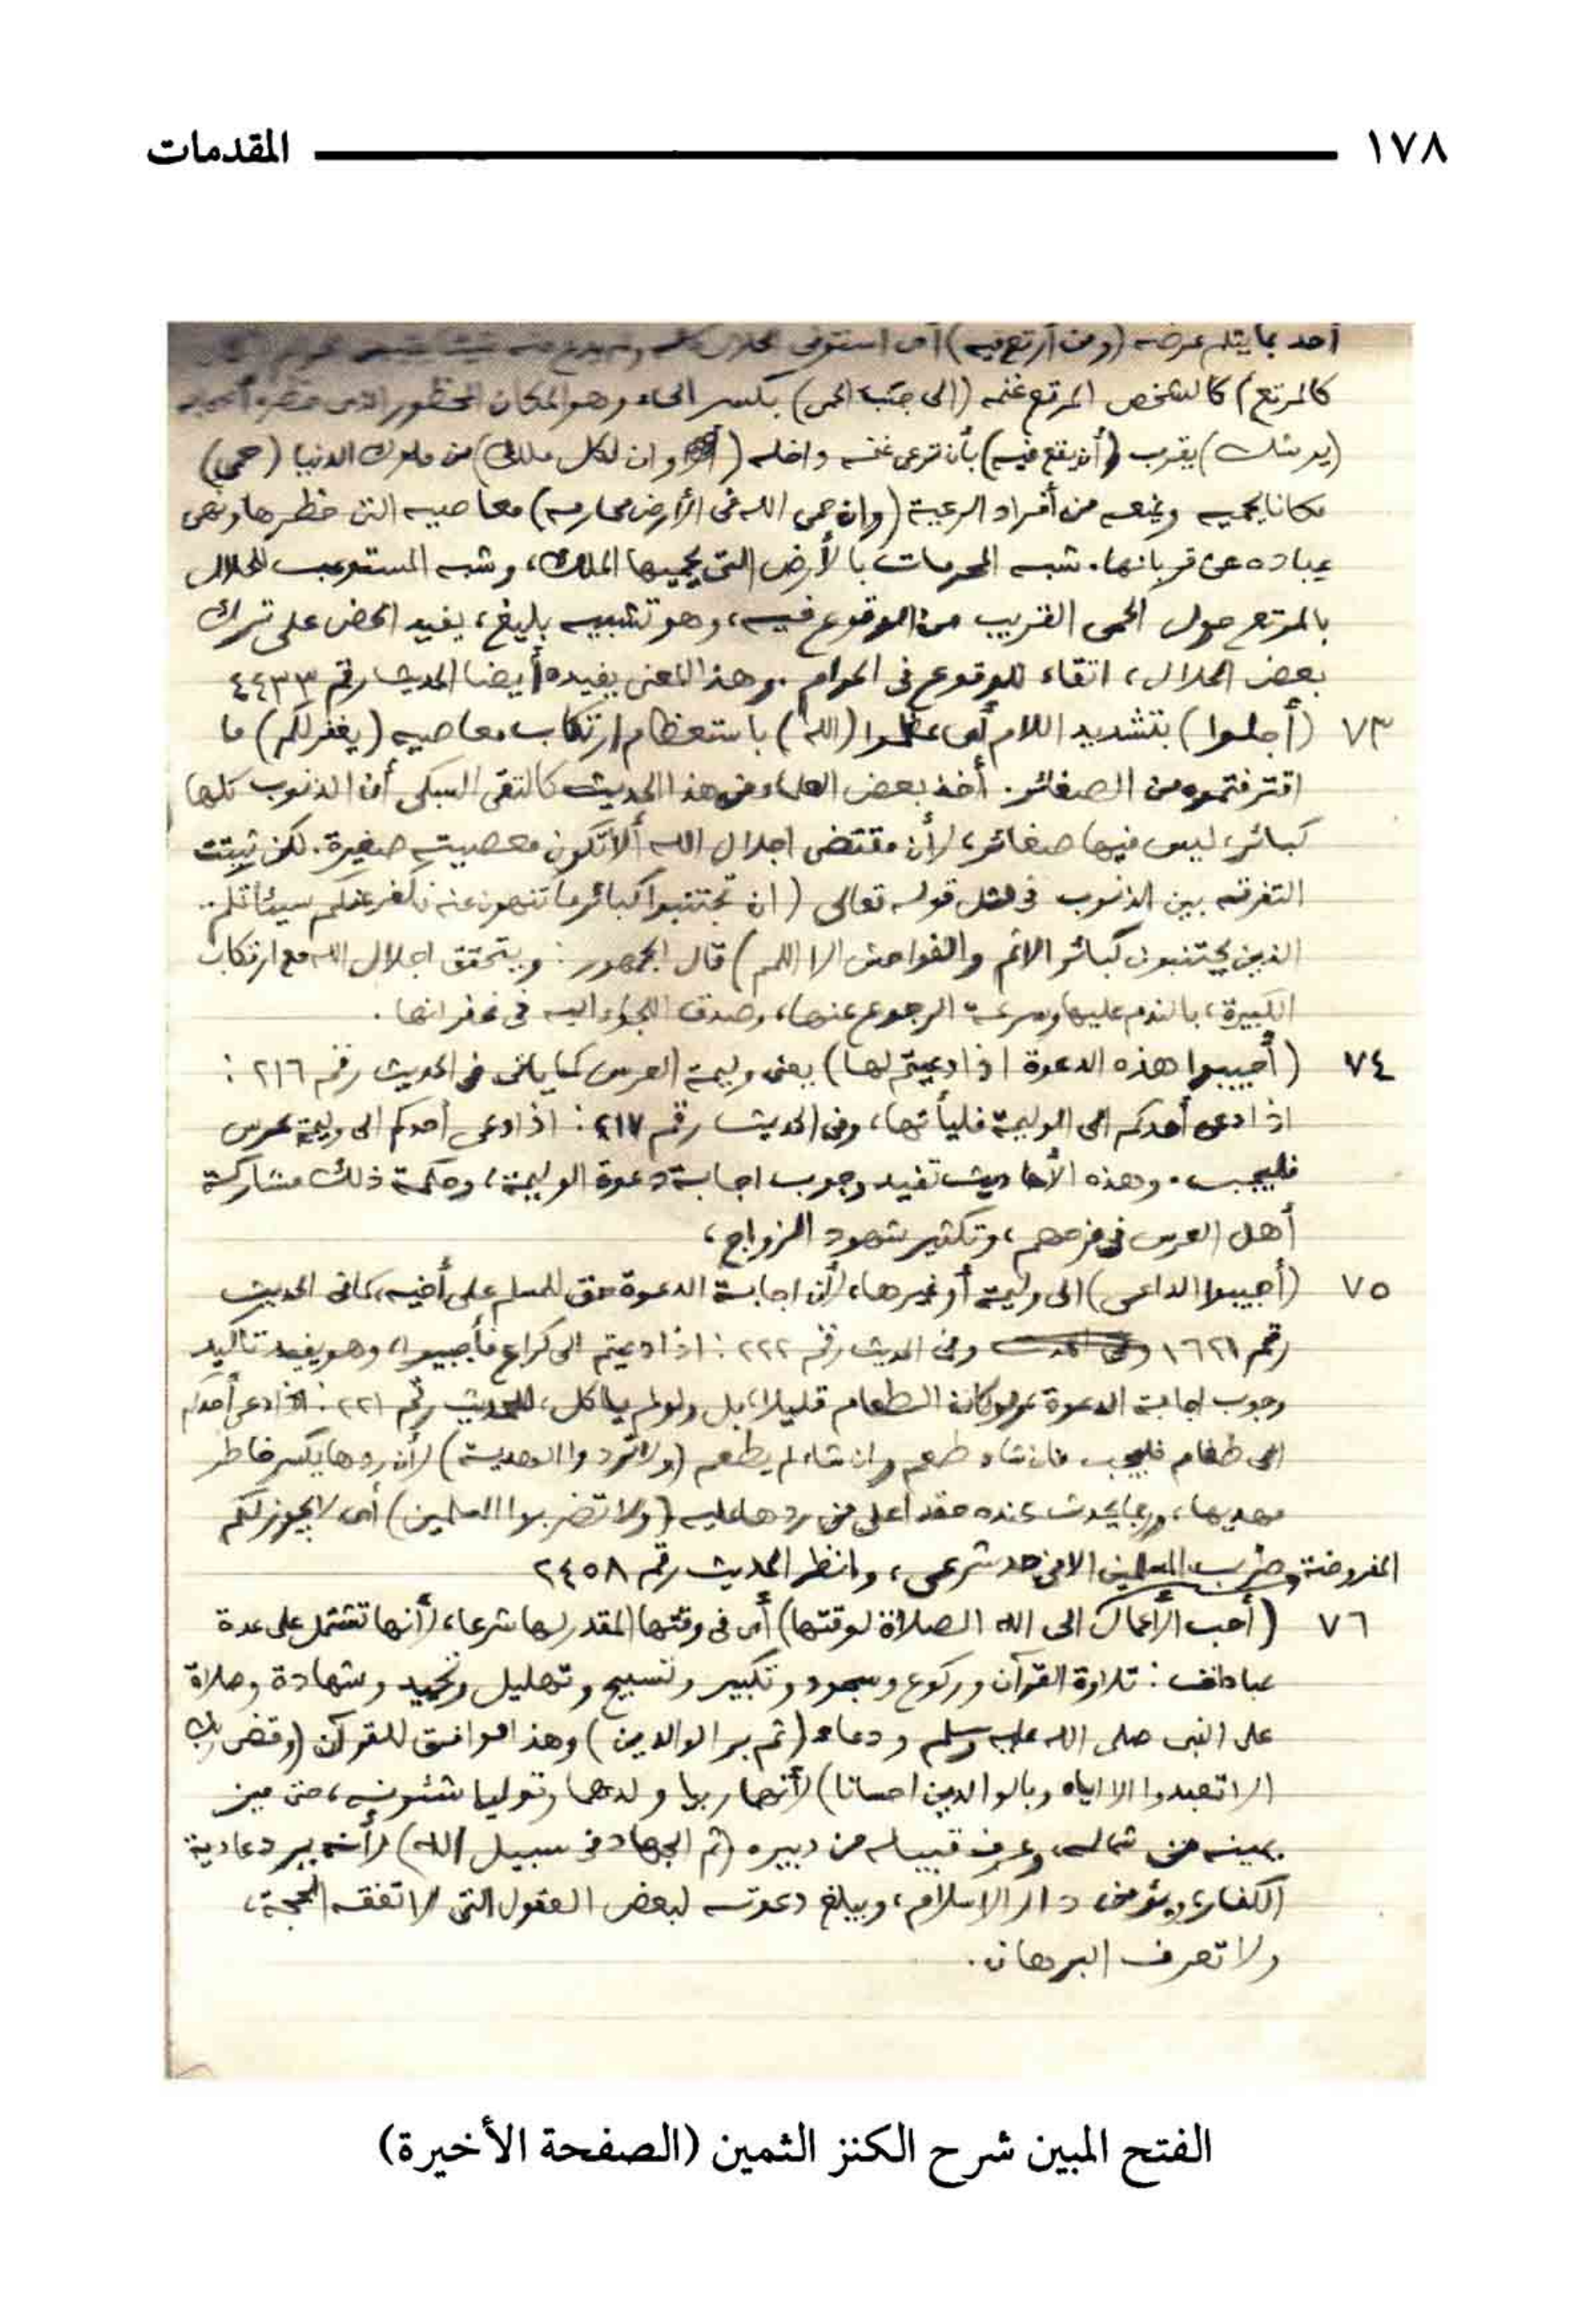 ١٧٨ المقدمات
أحد بما يثلم عرضه (ومن أرتع فيه) أى استوفى الحلال كله ولم يدع منه شيئا
كالمرتع) كالشخص المرتع غنمه (الى جنب الحمى) بكسر الحاء وهو المكان المحظور الذى
(يوشك) يقرب (أن يقع فيه) بأن ترعى غنمه داخله (وان لكل ملك) من ملوك الدنيا (حمى)
مكانا يحميه ويمنعه من أفراد الرعية (وان حمى الله فى الأرض محارمه) معاصيه التى حظرها ونهى
عباده عن قربانها. شبه المحرمات بالأرض التى يحميها الملك، وشبه المستوعب للحلال
بالمرتع حول الحمى القريب من الوقوع فيه، وهو تشبيه بليغ، يفيد الحض على ترك
بعض الحلال، اتقاء للوقوع فى الحرام. وهذا المعنى يفيده أيضا الحديث رقم ٤٤٣٣
٧٣ (أجلوا) بتشديد اللام أى عظموا (الله) باستعظام ارتكاب معاصيه (يغفر لكم) ما
اقترفتموه من الصغائر. أخذ بعض العلماء من هذا الحديث كالتقى السبكى أن الذنوب كلها
كبائر، ليس فيها صغائر، لأن مقتضى اجلال الله ألا تكون معصيته صغيرة. لكن ثبتت
التفرقة بين الذنوب فى مثل قوله تعالى (ان تجتنبوا كبائر ما تنهون عنه نكفر عنكم سيئاتكم..
الذين يجتنبون كبائر الاثم والفواحش الا اللمم) قال الجمهور: ويتحقق اجلال الله مع ارتكاب
الكبيرة، بالندم عليها وسرعة الرجوع عنها، وصدق اللجاء اليه فى غفرانها.
٧٤ (أجيبوا هذه الدعوة اذا دعيتم لها) يعنى وليمة العرس كما يأتى فى الحديث رقم ٢١٦:
اذا دعى أحدكم الى الوليمة فليأتها، وفى الحديث رقم ٢١٧: اذا دعى أحدكم الى وليمة عرس
فليجب. وهذه الأحاديث تفيد وجوب اجابة دعوة الوليمة، وحكمة ذلك مشاركة
أهل العرس فى فرحهم، وتكثير شهود الزواج،
٧٥ (أجيبوا الداعى) الى وليمة أو غيرها، لأن اجابة الدعوة حق للمسلم على أخيه، كما فى الحديث
رقم ١٦٢١ وفى الحديث رقم ٢٢٢: اذا دعيتم الى كراع فأجيبوا، وهو يفيد تأكيد
وجوب اجابة الدعوة ولو كان الطعام قليلا، بل ولو لم يأكل، للحديث رقم ٢٢١: اذا دعى أحدكم
الى طعام فليجب فان شاء طعم وان شاء لم يطعم (ولا تردوا الهدية) لأن ردها يكسر خاطر
مهديها، وربما يحدث عنده حقدا على من ردها عليه (ولا تضربوا المسلمين) أى لا يجوز لكم
المفروضة ضرب المسلمين الا فى حد شرعى، وانظر الحديث رقم ٢٤٥٨
٧٦ (أحب الأعمال الى الله الصلاة لوقتها) أى فى وقتها المقدر لها شرعا، لأنها تشتمل على عدة
عبادات: تلاوة القرآن وركوع وسجود وتكبير وتسبيح وتهليل وتحميد وشهادة وصلاة
على النبى صلى الله عليه وسلم ودعاء (ثم بر الوالدين) وهذا موافق للقرآن (وقضى ربك
ألا تعبدوا الا اياه وبالوالدين احسانا) لأنهما ربيا ولدهما وتوليا شئونه، حتى ميز
يمينه من شماله، وعرف قبيله من دبيره (ثم الجهاد فى سبيل الله) لأنه يرد عادية
الكفار، ويؤمن دار الاسلام، ويبلغ دعوته لبعض العقول التى لا تفقه الحجة،
ولا تعرف البرهان.
الفتح المبين شرح الكنز الثمين (الصفحة الأخيرة)